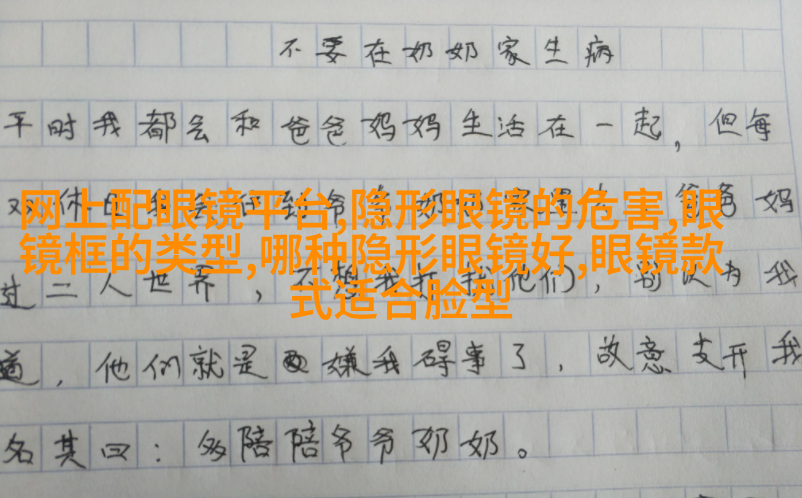 不要在奶奶家生病
平时我都会和爸爸妈妈生活在一起，但每
网上配眼镜平台,隐形眼镜的危害,眼
镜框的类型,哪种隐形眼镜好,眼镜款
式适合脸型
过二人世界，不想我打扰他们，别以为我
道，他们就是嫌我碍事了，故意支开我
名其曰：多陪陪爷爷奶奶。